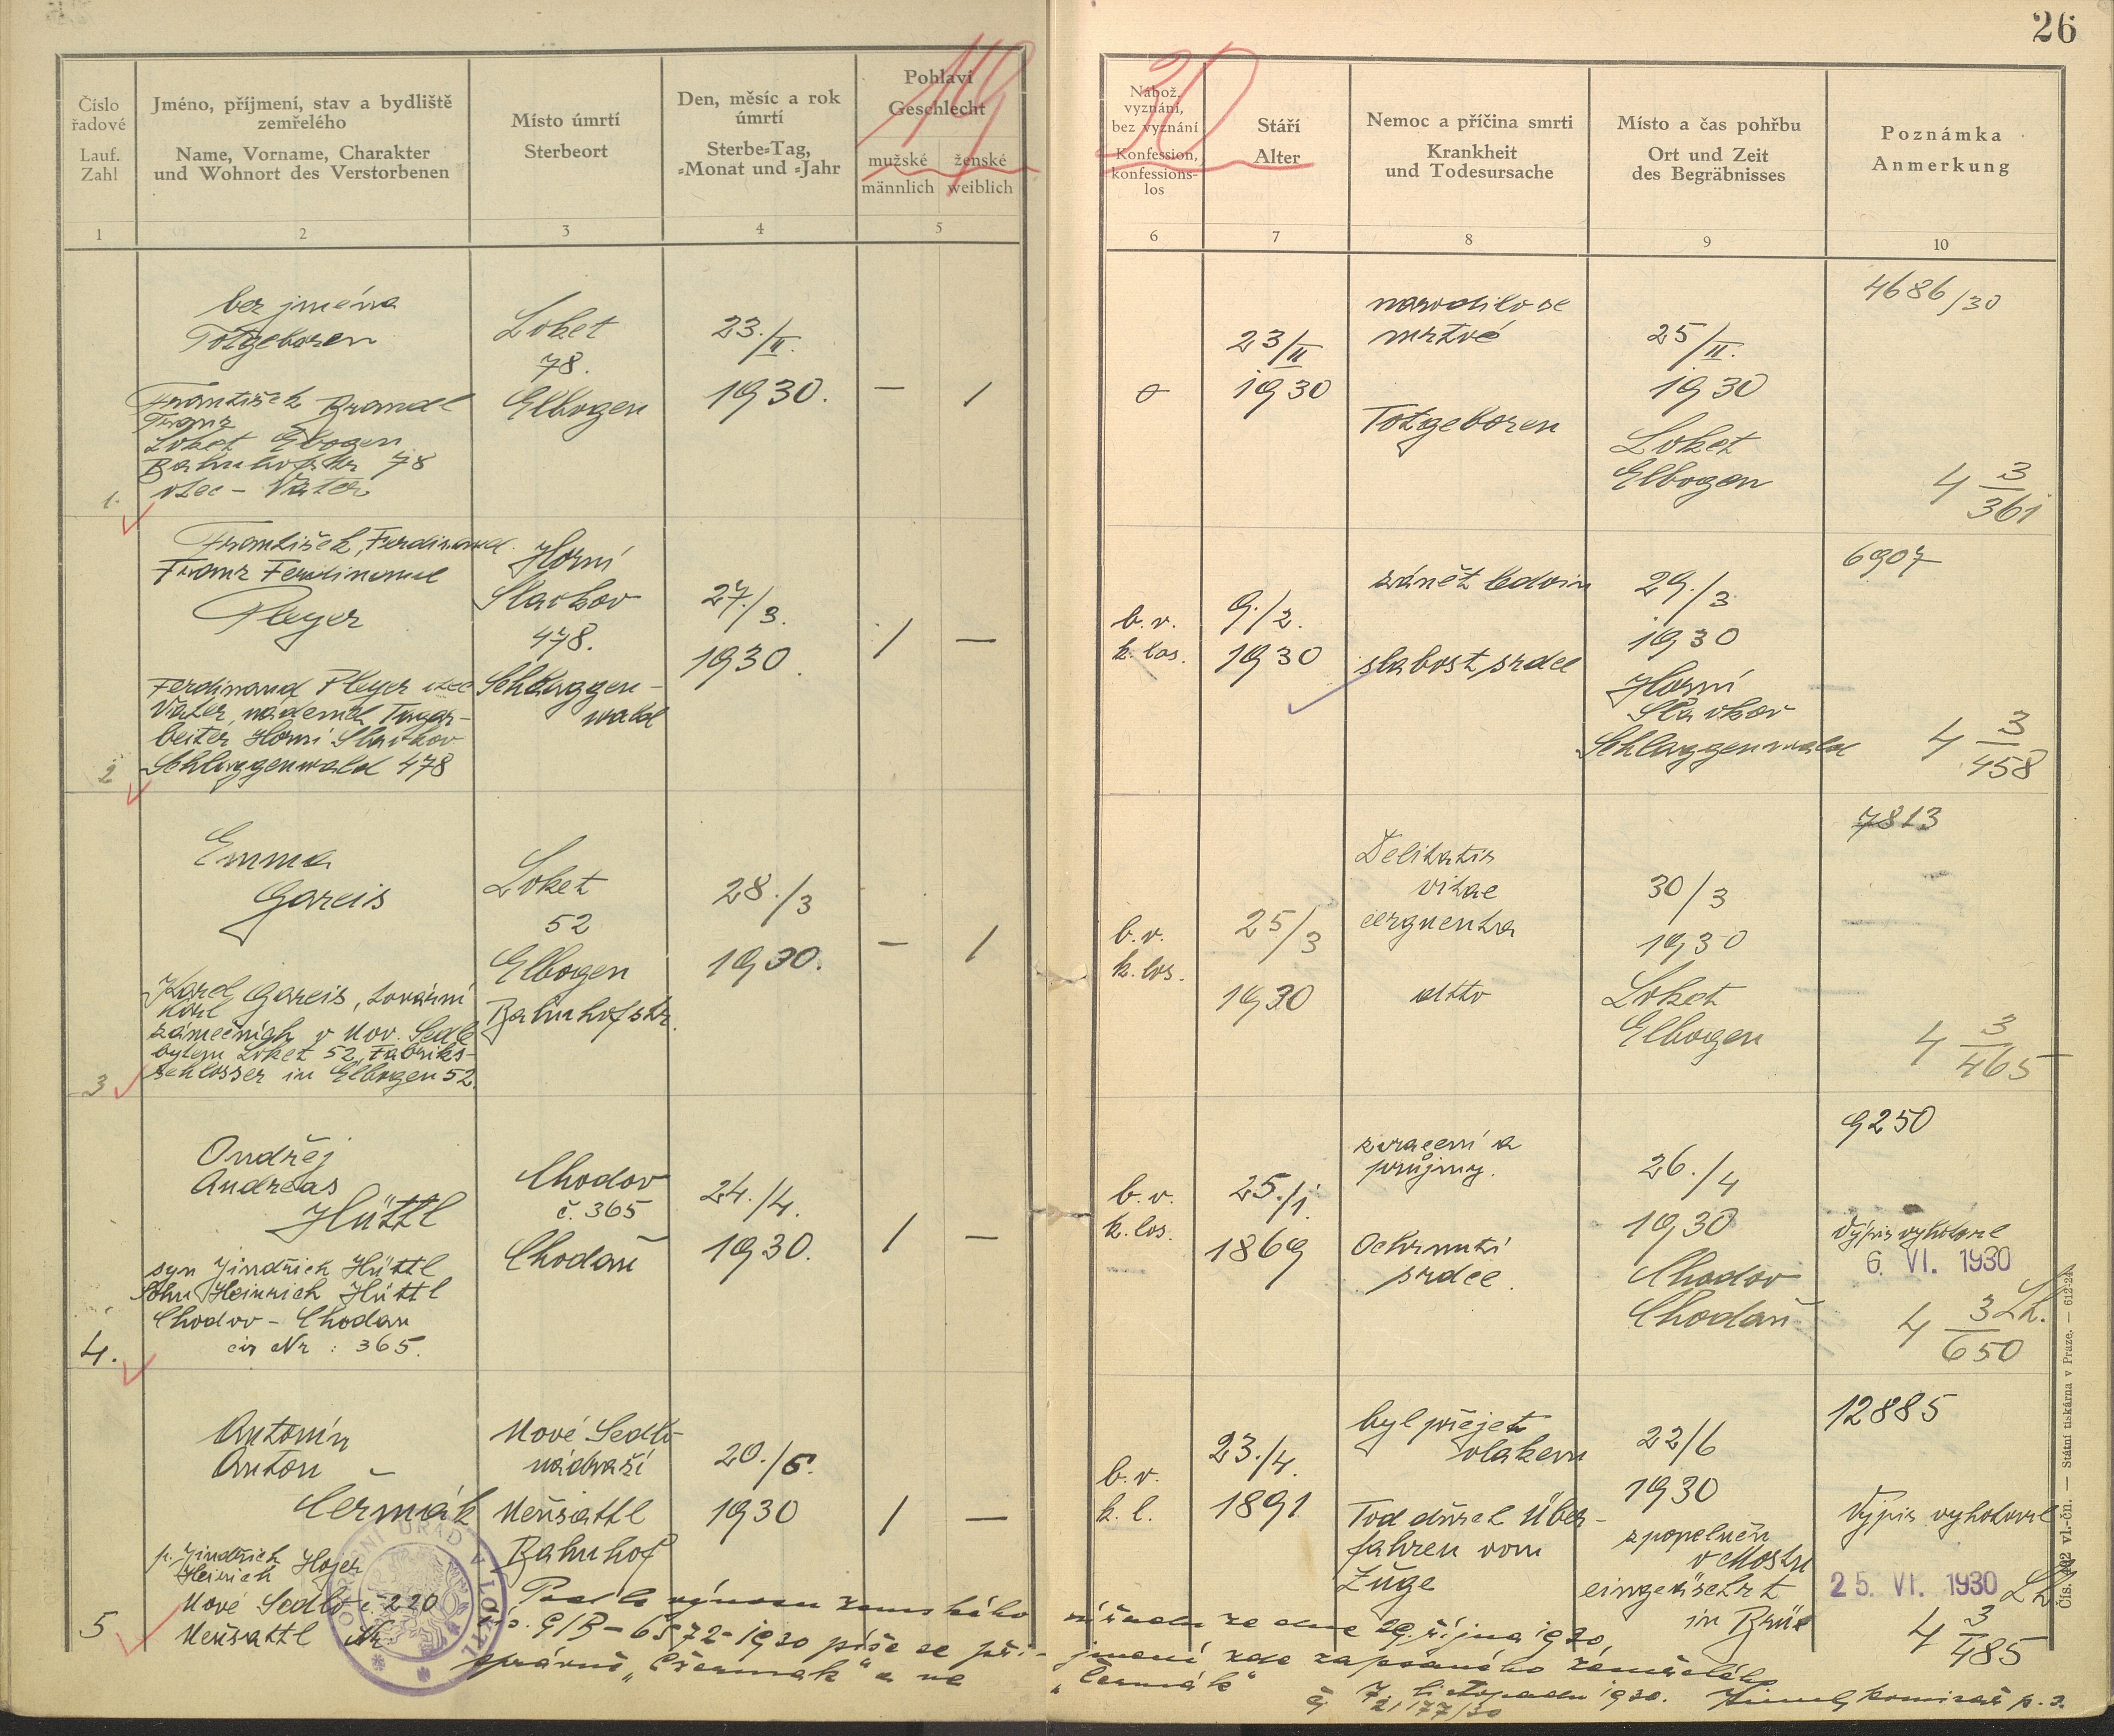 26
Číslo
řadové
Lauf.
Zahl
Jméno, příjmení, stav a bydliště
zemřelého
Name, Vorname, Charakter
und Wohnort des Verstorbenen
Místo úmrtí
Sterbeort
Den, měsíc a rok
úmrtí
Sterbe-Tag,
-Monat und -Jahr
Pohlaví
Geschlecht
mužské
männlich
ženské
weiblich
Nábož.
vyznání,
bez vyznání
Konfession,
konfessions-
los
Stáří
Alter
Nemoc a příčina smrti
Krankheit
und Todesursache
Místo a čas pohřbu
Ort und Zeit
des Begräbnisses
Poznámka
Anmerkung
1 2 3 4 5 6 7 8 9 10
1.
bez jména
Totgeboren
František Brandl
Franz
Loket Elbogen
Bahnhofstr 78
otec - Vater
Loket
78.
Elbogen
23./II.
1930.
— /
23/II
1930
narodilo se
mrtvé
Totgeboren
25/II.
1930
Loket
Elbogen
4686/30
4 3/361
2
František, Ferdinand
Franz Ferdinand
Pleyer
Ferdinand Pleyer otec
Vater, nádeník Tagar-
beiter Horní Slavkov
Schlaggenwald 478
Horní
Slavkov
478.
Schlaggen-
wald
27./3.
1930.
/ —
b. v.
k. los.
9./2.
1930
zánět ledvin
slabost srdce
29./3
1930
Horní
Slavkov
Schlaggenwald
6907
4 3/458
3
Emma
Gareis
Karel Gareis, tovární
Karl
zámečník v Nov. Sedle
bytem Loket 52, Fabriks-
schlosser in Elbogen 52.
Loket
52
Elbogen
Bahnhofstr.
28./3
1930.
— /
b. v.
k. los.
25/3
1930
vitae
dtto
30/3
1930
Loket
Elbogen
7813
4 3/465
4.
Ondřej
Andreas
Hüttl
syn Jindřich Hüttl
Sohn Heinrich Hüttl
Chodov - Chodau
čis Nr : 365.
Chodov
č. 365
Chodau
24./4.
1930.
/ —
b. v.
k. los.
25./1.
1869
zvracení a
průjmy.
Ochrnutí
srdce.
26./4
1930
Chodov
Chodau
9250
Výpis vyhotovil
6. VI. 1930
4 3/650
5
Antonín
Anton
Čermák
p. Jindřich Hojer
Heinrich
Nové Sedlo č. 220
Neusattl Nr.
Nové Sedlo-
nádraží
Neusattl
Bahnhof
20./6.
1930
/ —
b. v.
k. l.
23./4.
1891
byl přejet
vlakem
Tod durch Über-
fahren vom
Zuge
22/6
1930
zpopelněn
v Mostu
eingeäschert
in Brüx
12885
Výpis vyhotovil
25. VI. 1930
4 3/485
Podle výnosu zemského úřadu ze dne 29. října 1930,
čís. G/B-6572-1930 píše se pří- jmení zde zapsaného zemřelého
správně „Czermak" a ne „Čermák"
7. listopadu 1930. komisař p. s.
Čís. 202 vl.-čn. — Státní tiskárna v Praze. — 612-24